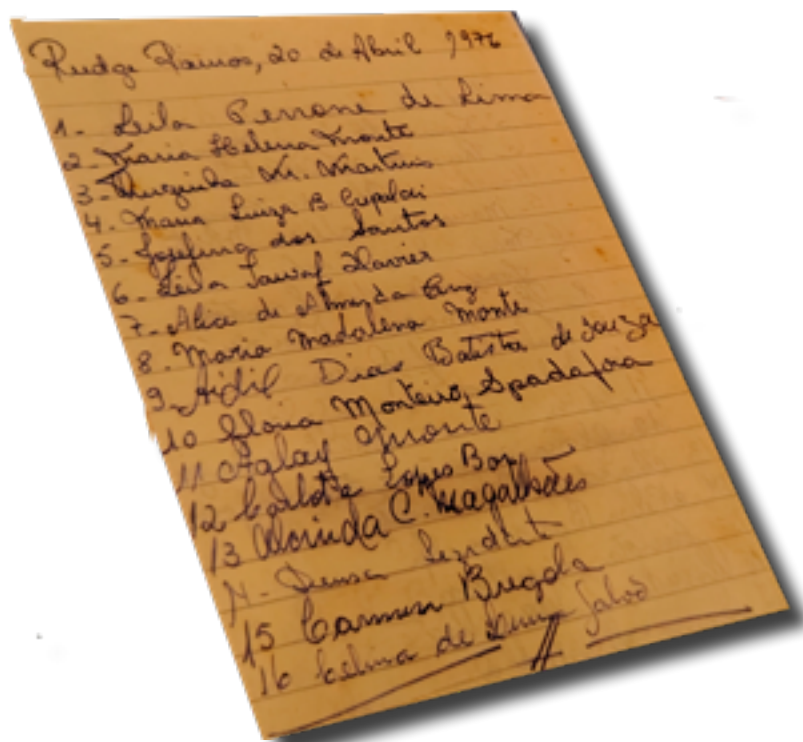 Rudge Ramos, 20 de Abril 1976
1- Leila Perrone de Lima
2- Maria Helena Monte
3- M. Martins
4- Maria Luiza B
5- Josefina dos Santos
6- Leila Xavier
7- Alice de Almeida Cruz
8- Maria Madalena Monte
9- Aidil Dias Batista de Souza
10 Gloria Monteiro Spadafora
11 Aglay Monte
12 Carlota Lopes
13 Dorinda C. Magalhães
14-
15 Carmen Bugda
16 Celina de